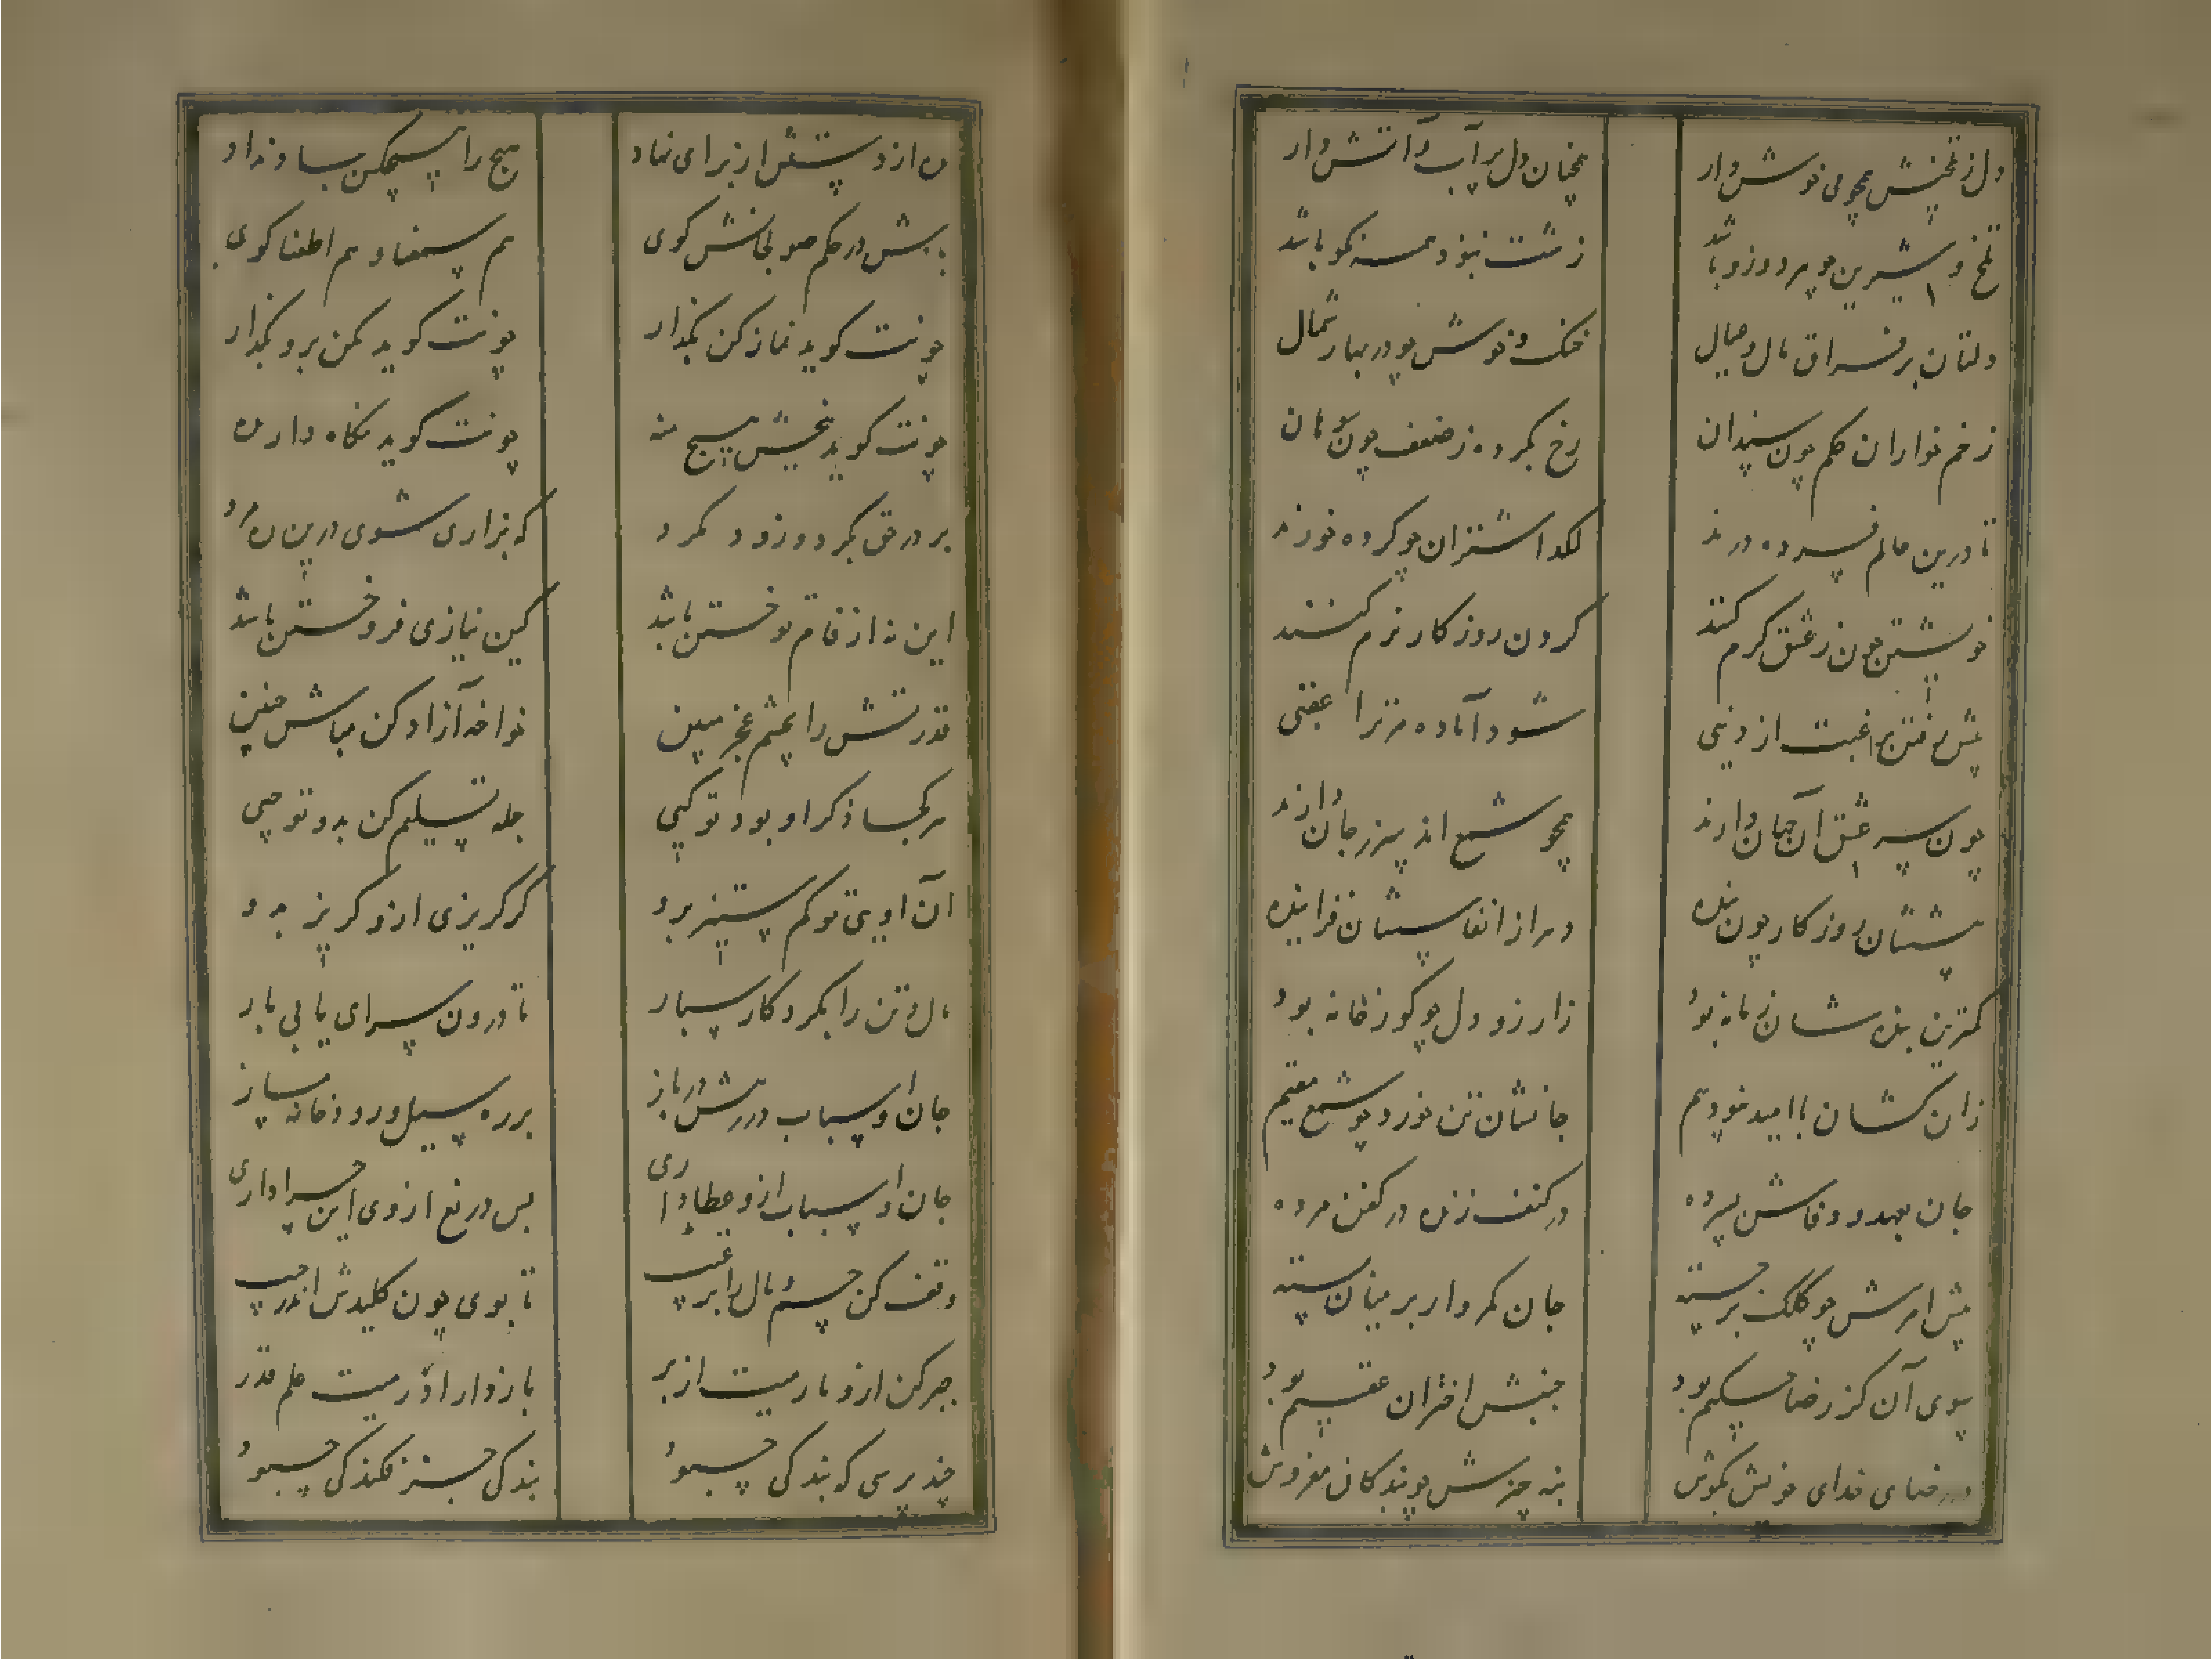 دل ز تلخیش همچو می خوش وار همچنان دل بر آب و آتش وار
تلخ و شیرین چو هر دو زو باشد زشت نبود همه نکو باشد
دلتان بر فراق مال و عیال خنک و خوش چو در بهار شمال
زخم خواران حکم چون سندان رخ بکرده ز ضعف چون
تا درین عالم فسرده درند لکد اشتران چو کرده خورند
خویشتن چون ز عشق کرم کنند کردن روزکار نرم کنند
پیش رفتن برغبت از دنیی شود آماده مر ترا عقبی
چون سر عشق آن جهان دارند همچو شمع از سر زر جان دارند
پیششان روزکار چون بنده دهر از انفاسشان فزاینده
کمترین بنده شان زمانه بود زارزو دل چو کور خانه بود
زان کشان با امید خود وهم جانشان تن خورد چو شمع مقیم
جان بعهد و وفاش سپرده در کنف زنده در کفن مرده
پیش امرش چو کلک برجسته جان کمروار بر میان بسته
سوی آن کز رضا حکیم بود جنبش اختران عقیم بود
در رضای خدای خویش بکوش بنه چیزش چو بندکان مفروش
ده ازو پشتش از برای نماد هیچ را هیچکس نساد و نداد
باش در حکم صولجانش کوی هم سمعنا و هم اطعنا کوی
چونت کوید نماز کن بگذار چونت کوید مکن برو بگذار
چونت کوید ببخش هیچ منه چونت کوید نگاه دار مده
بر در حق بکرد و زود مکرد که بزاری شوی درین ره مرد
این نه از فاقه توختن باشد کین نیازی فروختن باشد
قدرتش را بچشم عجز مبین خواجه آزاد کن مباش چنین
هر کجا ذکر او بود تو کیی جمله تسلیم کن بدو تو چیی
آن اویی تو کم ستیز برو کر کریزی ازو کریز بدو
مال و تن را بکردکار سپار تا درون سرای یابی بار
جان و اسباب در رهش در باز بر ره سیل و رود خانه مساز
جان و اسباب ازو عطا داری بس دریغ از وی این چرا داری
وقف کن جسم و مال را بر غیب تا بوی چون کلیدش اندر جیب
جبر کن ازو مارمیت از بر باز دار اذ رمیت علم قدر
چند پرسی که بندکی چبود بندکی جز فکندکی چبود